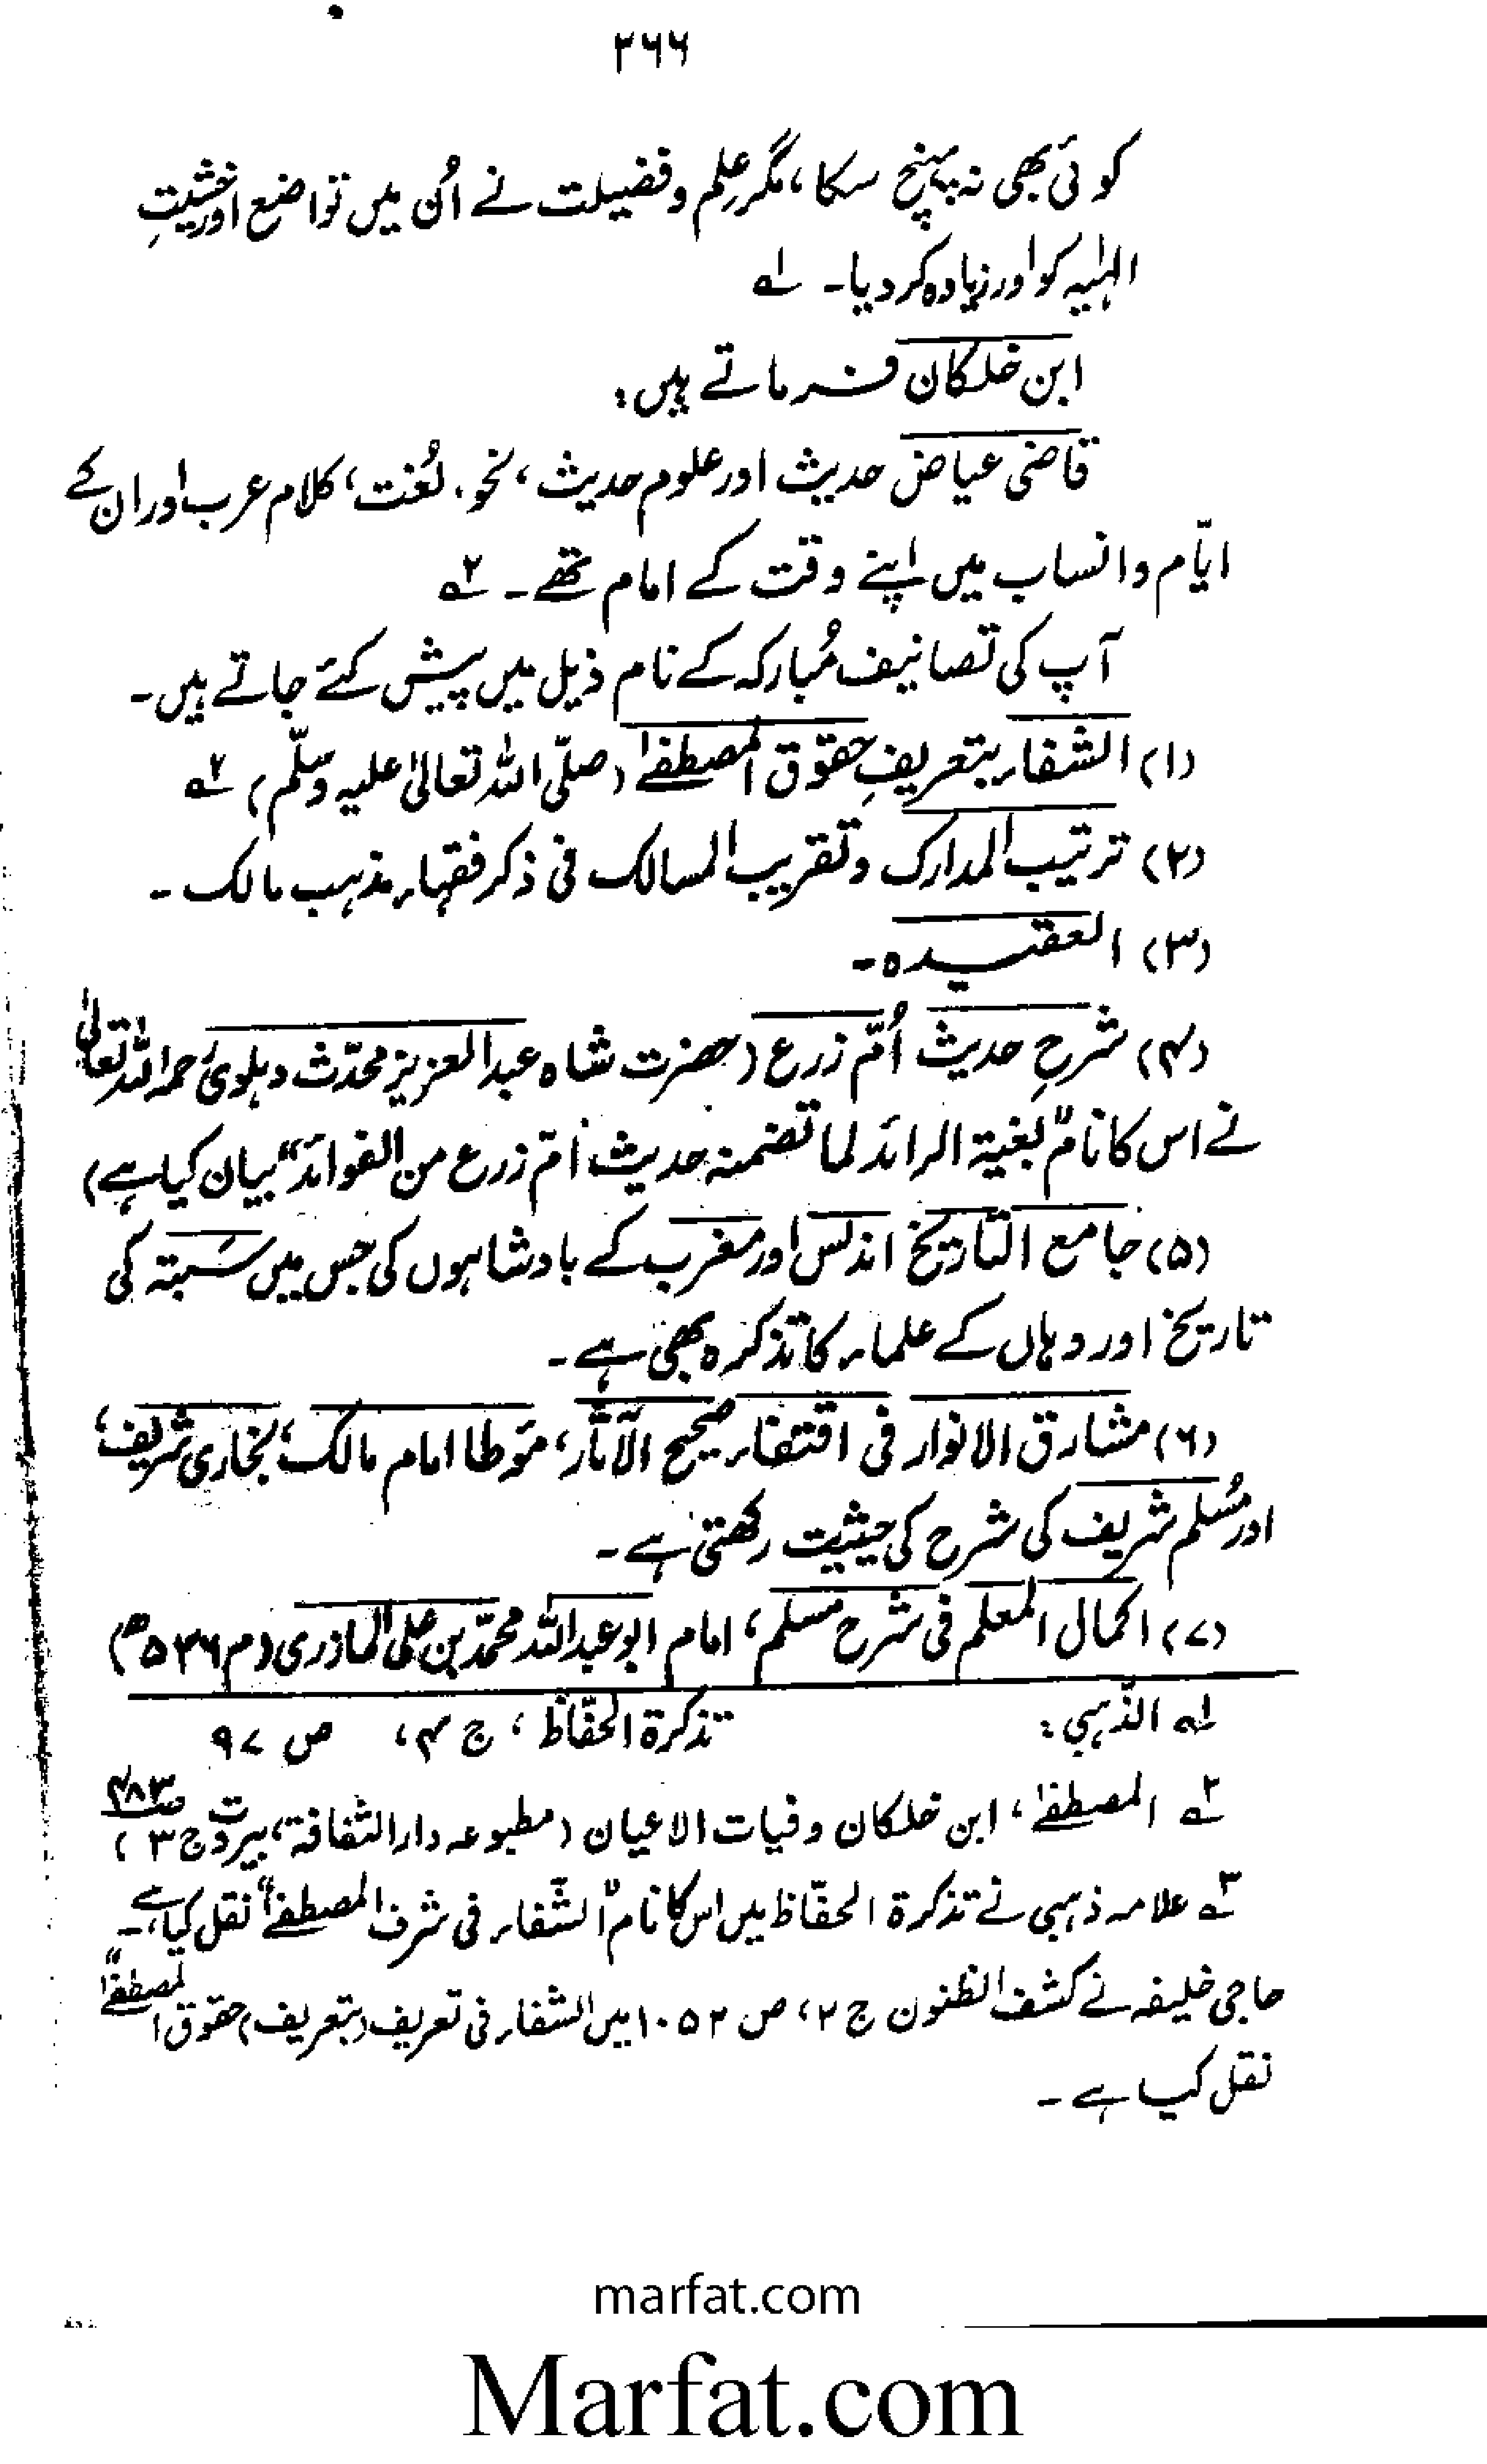 ۲۶۶
کوئی بھی نہ پہنچ سکا، مگر عِلم و فضیلت نے اُن میں تواضع اور خشیتِ
الہٰیہ کو اور زیادہ کردیا۔ ۱؎
ابن خلکان فرماتے ہیں:
قاضی عیاض حدیث اور علوم حدیث، نحو، لُغت، کلام عرب اور ان کے
ایّام و انساب میں اپنے وقت کے امام تھے۔ ۲؎
آپ کی تصانیف مُبارکہ کے نام ذیل میں پیش کئے جاتے ہیں۔
(۱) الشفاء بتعریفِ حقوق المصطفٰے (صلّی اللہ تعالیٰ علیہ وسلّم) ۲؎
(۲) ترتیب المدارک و تقریب المسالک فی ذکر فقہاء مذہب مالک۔
(۳) العقیدہ۔
(۴) شرحِ حدیث اُمّ زرع (حضرت شاہ عبدالعزیز محدّث دہلوی رحمہ اللہ تعالیٰ
نے اس کا نام "بغیۃ الرائد لما تضمنہ حدیث اُمّ زرع من الفوائد" بیان کیا ہے)
(۵) جامع التاریخ اندلس اور مغرب کے بادشاہوں کی جس میں سَبتہ کی
تاریخ اور وہاں کے علماء کا تذکرہ بھی ہے۔
(۶) مشارق الانوار فی اقتفاء صحیح الآثار، مؤطا امام مالک، بخاری شریف،
اور مُسلم شریف کی شرح کی حیثیت رکھتی ہے۔
(۷) اکمال المعلم فی شرح مسلم، امام ابو عبداللہ محمّد بن علی المازری (م ۵۳۶ھ)
۱؎ الذّہبی: تذکرۃ الحفّاظ، ج ۴، ص ۹۷
۲؎ المصطفٰے، ابن خلکان وفیات الاعیان (مطبوعہ دار الثقافۃ، بیروت ج ۳) ص ۴۸۳
۳؎ علامہ ذہبی نے تذکرۃ الحفّاظ میں اس کا نام "الشّفاء فی شرف المصطفےٰ" نقل کیا ہے۔
حاجی خلیفہ نے کشف الظنون ج ۲، ص ۱۰۵۲ میں "الشفاء فی تعریف (بتعریف) حقوق المصطفےٰ"
نقل کیا ہے۔
marfat.com
Marfat.com